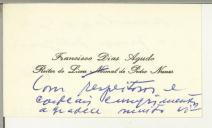 Francisco Dias Agudo
Reitor do Liceu Normal de Pedro Nunes
Com respeitosos e
cordiais cumprimentos
agradece muito